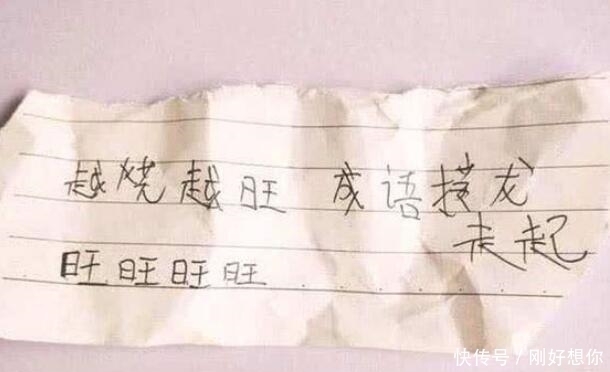 越烧越旺 成语接龙
走起
旺旺旺旺............
快传号/刚好想你